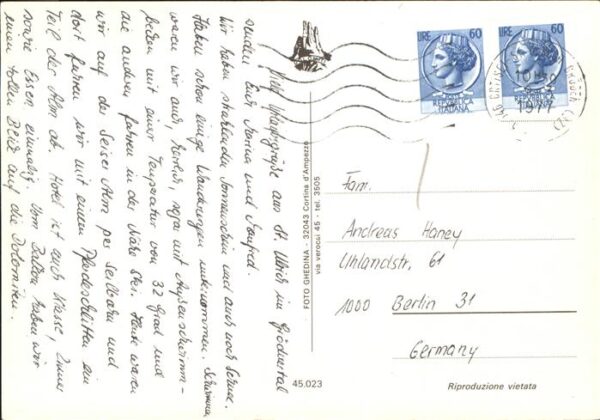 Viele Urlaubsgrüße aus St. Ulrich im Grödnertal
senden Euch Marina und Manfred.
Wir haben strahlenden Sonnenschein und auch noch Schnee.
Haben schon einige Wanderungen unternommen. Schwimmen
waren wir auch, herrlich, sogar mit Außenschwimm-
becken mit einer Temperatur von 32 Grad und
die anderen fahren in der Nähe Ski. Heute waren
wir auf der Seiser Alm per Seilbahn und
dort fuhren wir mit einem Pferdeschlitten ein
Teil der Alm ab. Hotel ist auch Klasse, Zimmer
sowie Essen einmalig. Vom Balkon haben wir
einen tollen Blick auf die Dolomiten.
FOTO GHEDINA - 32043 Cortina d'Ampezzo
via varocui 45 - tel. 3505
LIRE 60
LIRE 60
REPUBBLICA
ITALIANA
1977
Fam.
Andreas Haney
Uhlandstr. 61
1000 Berlin 31
Germany
45.023
Riproduzione vietata